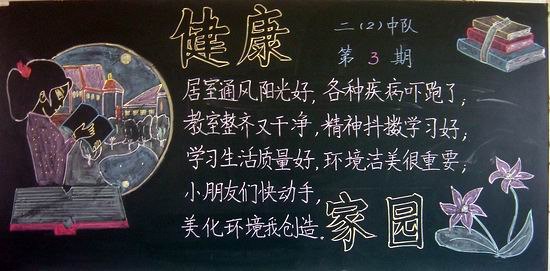 健康
二（2）中队
第3期
居室通风阳光好，各种疾病吓跑了；
教室整齐又干净，精神抖擞学习好；
学习生活质量好，环境洁美很重要；
小朋友们快动手，
美化环境我创造．
家园